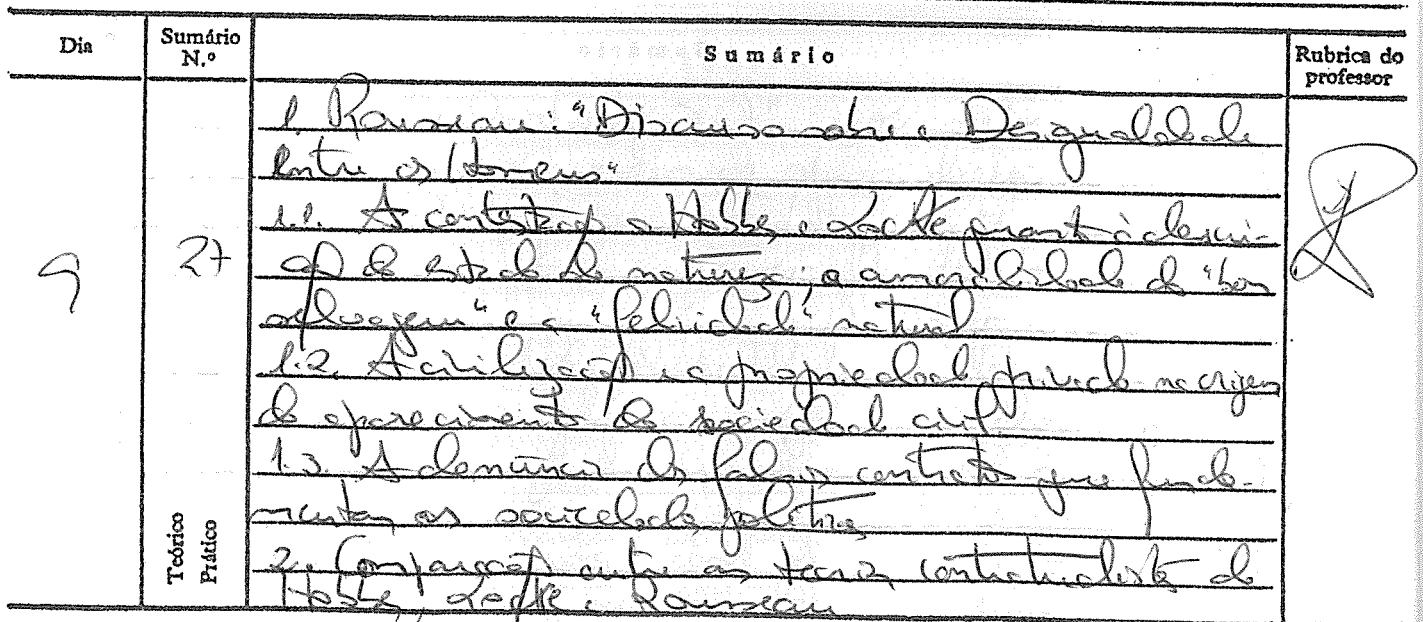 Dia Sumário N.º Sumário Rubrica do professor
9 27 Teórico Prático
1. Rousseau: "Discurso sobre a Desigualdade
entre os Homens"
1.1. A contestação a Hobbes e Locke quanto à descri-
ção do estado de natureza; a amoralidade do "bom
selvagem" e a "felicidade" natural
1.2. A civilização e a propriedade privada na origem
do aparecimento da sociedade civil
1.3. A denúncia dos falsos contratos que funda-
mentam as sociedades políticas
2. Comparação entre as teorias contratualistas de
Hobbes, Locke e Rousseau